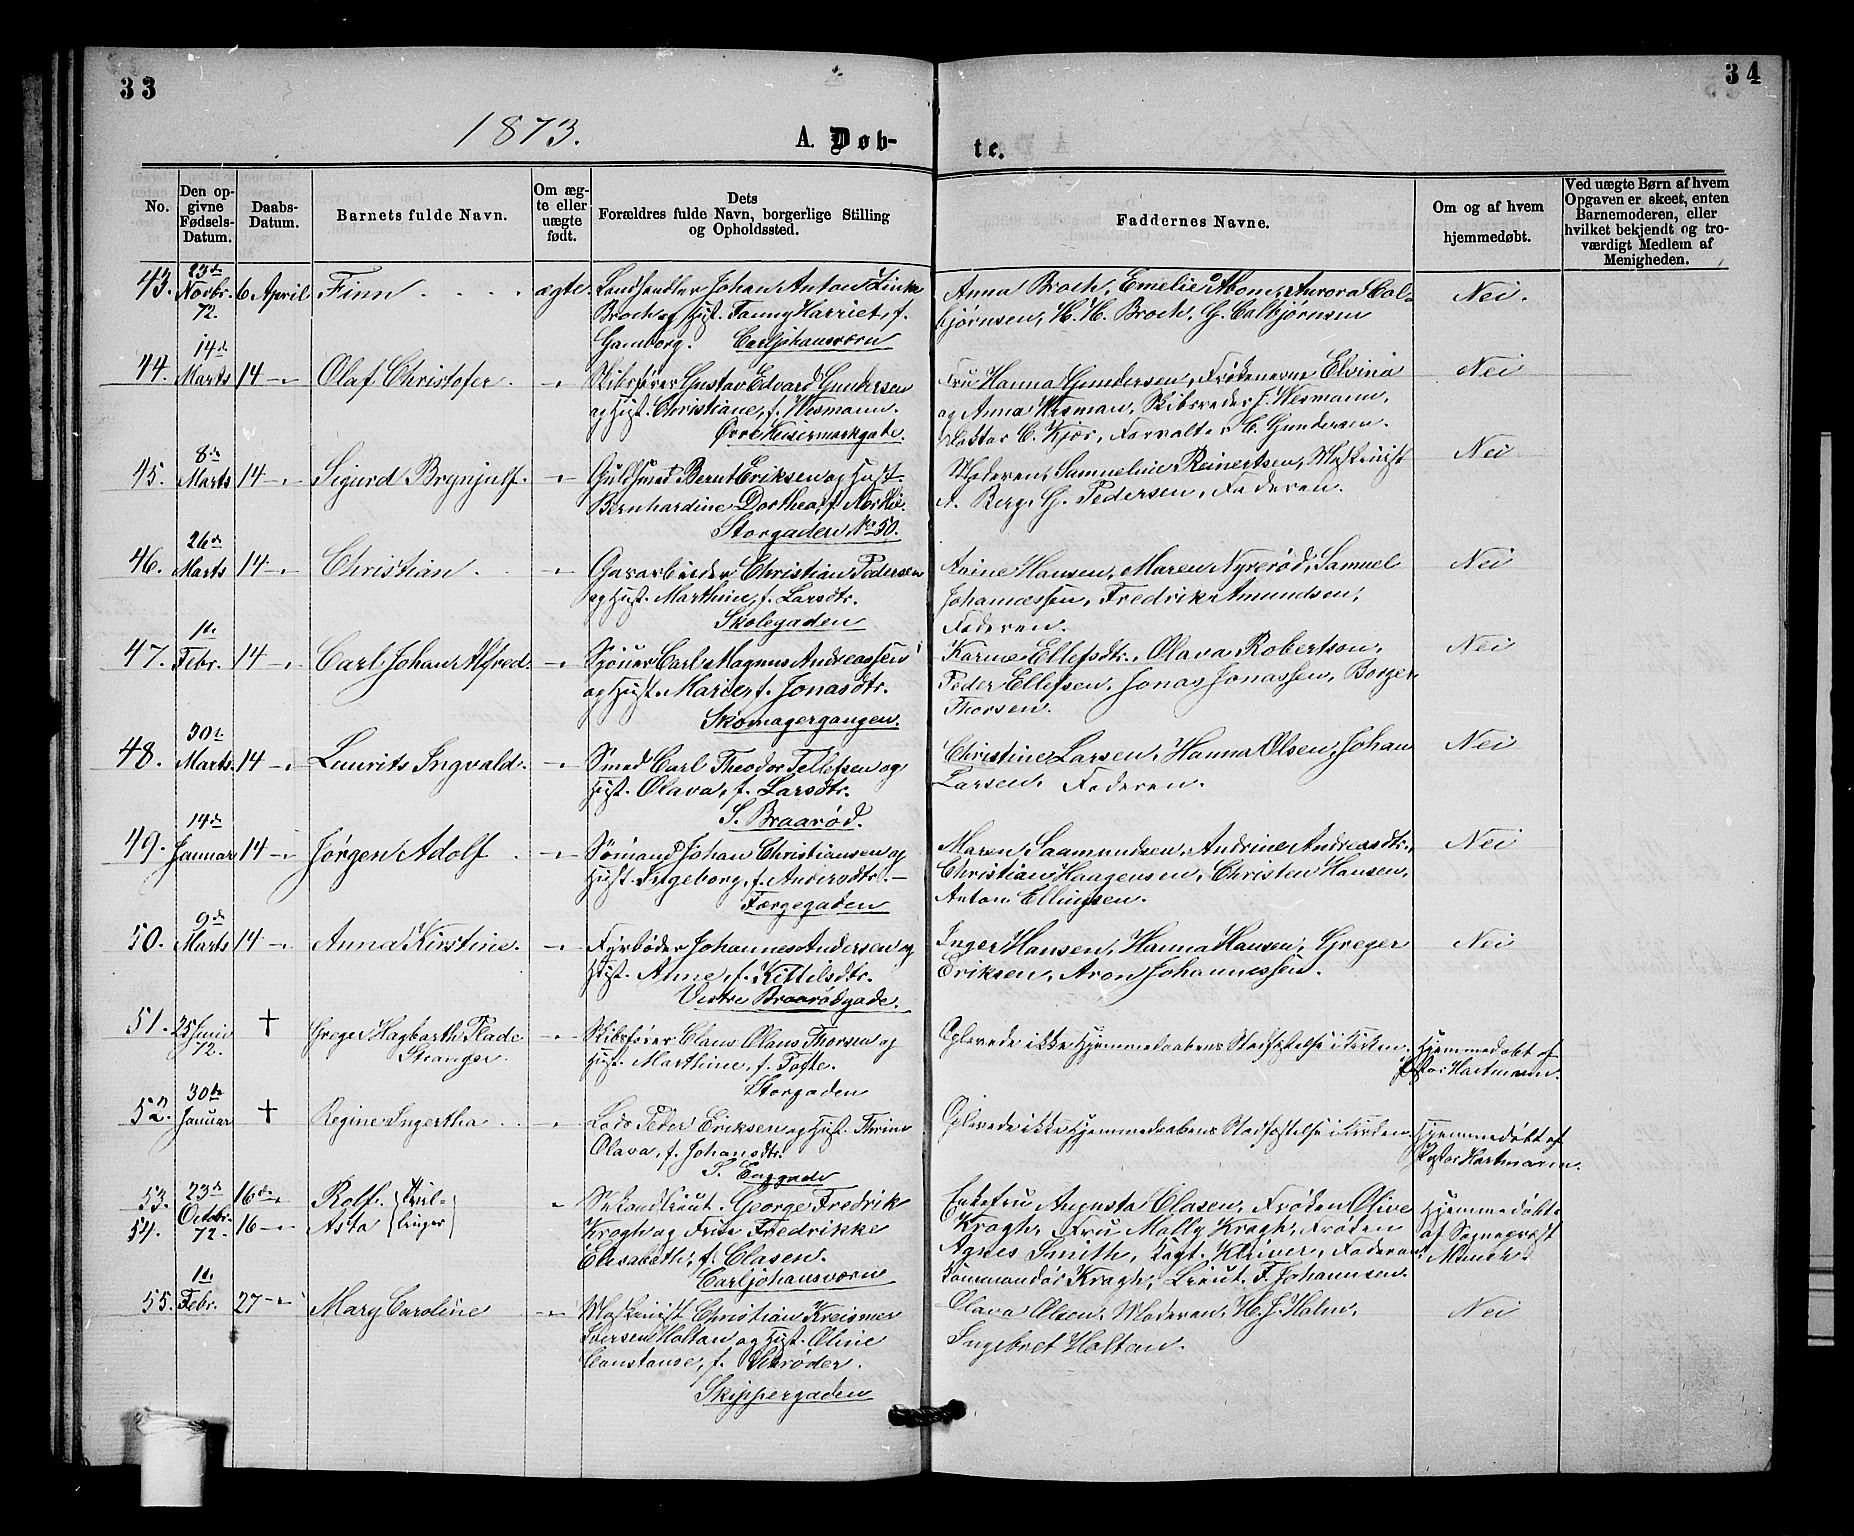 33
34
1873.
A. Døb-
te.
No.
Den op-
givne
Fødsels-
Datum.
Daabs-
Datum.
Barnets fulde Navn.
Om æg-
te eller
uægte
født.
Dets
Forældres fulde Navn, borgerlige Stilling
og Opholdssted.
Faddernes Navne.
Om og af hvem
hjemmedøbt.
Ved uægte Børn af hvem
Opgaven er skeet, enten
Barnemoderen, eller
hvilket bekjendt og tro-
værdigt Medlem af
Menigheden.
43. 23de Novbr. 72. 6 April Finn ægte.
Landhandler Johan Anton Linke
Broch og Hust. Fanny Harriet, f.
Gamborg. Carljohansværn
Anna Broch, Emelie Mom, Aurora Col-
bjørnsen, H. H. Broch, G. Colbjørnsen
Nei.
44. 14de Marts 14 -"- Olaf Christofer. -"-
Skibsfører Gustav Edvard Gundersen
og Hust. Christiane, f. Wesmann.
Øvre Keisermarkgate.
Fru Hanna Gundersen, Frøknerne Elvina
og Anna Wesman, Skibsreder J. Wesmann,
Doktor C. Kjær, Forvalter C. Gundersen.
Nei
45. 8de Marts 14 -"- Sigurd Brynjulf. -"-
Guldsmed Bernt Eriksen og Hust.
Bernhardine Dorthea, f.
Storgaden No 50.
Moderen, Samueline Reinertsen, Maskinist
A. Berg, G. Pedersen, Faderen.
Nei
46. 26de Marts 14 -"- Christian. -"-
Gasarbeider Christian Pedersen
og Hust. Marthine, f. Larsdtr.
Skolegaden
Hansen, Maren Nyrerød, Samuel
Johannessen, Fredrik Amundsen,
Faderen.
Nei
47. 1de Febr. 14 -"- Carl Johan Alfred. -"-
Sjøuer Carl Magnus Andreassen
og Hust. Maren, f. Jonasdtr.
Skomagergangen.
Karine Ellefsdtr., Olava Robertson,
Peder Ellefsen, Jonas Jonassen, Borger
Thorsen.
Nei
48. 30te Marts. 14 -"- Laurits Ingvald. -"-
Smed Carl Theodor Tellefsen og
Hust. Olava, f. Larsdtr.
S. Braarød.
Christine Larsen, Hanna Olsen, Johan
Larsen, Faderen.
Nei
49. 14de Januar 14 -"- Jørgen Adolf -"-
Sømand Johan Christiansen og
Hust. Ingeborg, f. Andersdtr.
Færgegaden
Maren Saamundsen, Andrine Andreasdtr.,
Christian Haagensen, Christen Hansen,
Anton Ellingsen.
Nei
50. 9de Marts 14 -"- Anna Kirstine. -"-
Fyrbøder Johannes Andersen og
Hust. Anne, f. Kittilsdtr.
Vestre Braarødgade.
Inger Hansen, Hanna Hansen, Greger
Eriksen, Aron Johannessen.
Nei
51. 25 Juni 72. † Greger Hagbarth Flade
Stranger. -"-
Skibsfører Claus Olaus Thorsen og
Hust. Marthine, f. Tofte.
Storgaden
Oplevede ikke Hjemmedaabens Stadfæstelse i Kirken.
Hjemmedøbt af
Pastor Hartmann.
52. 30te Januar † Regine Ingertha -"-
Lods Peder Eriksen og Hust. Thrine
Olava, f. Johansdtr.
S. Enggade
Oplevede ikke Hjemmedaabens Stadfæstelse i Kirken.
Hjemmedøbt af
Pastor Hartmann.
53. 23de Octobr. 72. 16de -"- Rolf. } Tvil- "
54. 16 -"- Asta } linger
Sekondlieut. George Fredrik
Kragh og Frue Fredrikke
Elisabeth, f. Clasen.
Carljohansværn
Enkefru Augusta Clasen, Frøken Olive
Kragh, Fru Mally Kragh, Frøken
Agnes Smith, Capt. Klüver, Faderen,
Kommandør Kragh, Lieut. F. Johannsen.
Hjemmedøbte
af Sogneprest
Munch.
55. 1de Febr. 27 -"- Mary Caroline -"-
Maskinist Christian Kreismer
Iversen Holtan og Hust. Oline
Constanse, f. Schrøder.
Skippergaden
Olava Olsen, Moderen, H. J. Holm,
Ingebret Holtan.
Nei